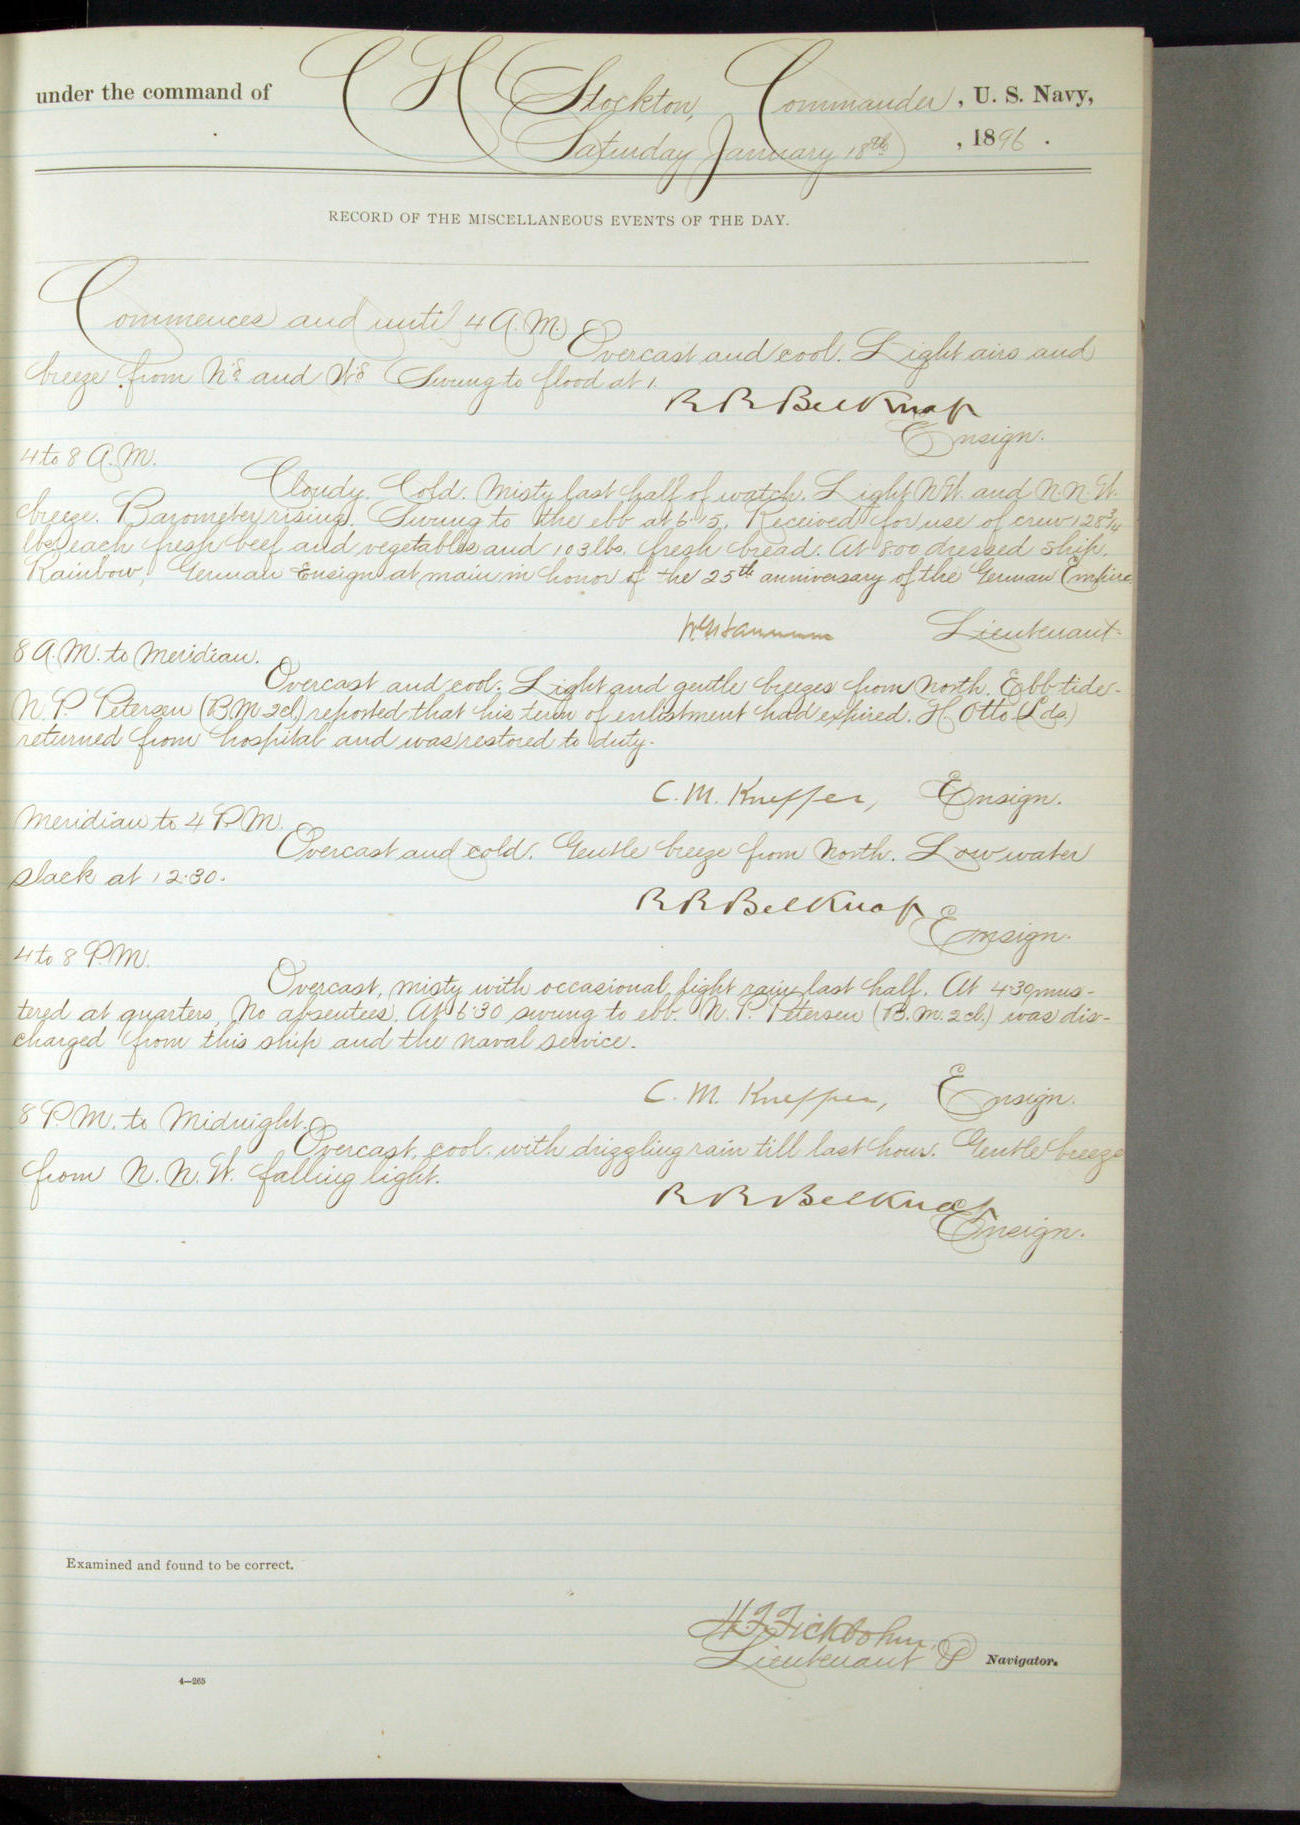 under the command of C H Stockton, Commander, U. S. Navy,
Saturday January 18th, 1896.
RECORD OF THE MISCELLANEOUS EVENTS OF THE DAY.
Commences and until 4 A.M.
Overcast and cool. Light airs and
breeze from Nd and Wd Swung to flood at 1.
R R Belknap
Ensign.
4 to 8 A.M.
Cloudy. Cold. Misty last half of watch. Light NW. and N.N.W.
breeze. Barometer rising. Swung to the ebb at 6.15. Received for use of crew 128 3/4
lbs each fresh beef and vegetables and 103 lbs. fresh bread. At 8.00 dressed ship,
Rainbow, German Ensign at main in honor of the 25th anniversary of the German Empire
Lieutenant.
8 A.M. to Meridian.
Overcast and cool. Light and gentle breezes from North. Ebb tide.
N. P. Petersen (B.M. 2cl) reported that his term of enlistment had expired. H. Otto (Lds.)
returned from hospital and was restored to duty.
C. M. Knepper, Ensign.
Meridian to 4 P.M.
Overcast and cold. Gentle breeze from North. Low water
slack at 12.30.
R R Belknap
Ensign.
4 to 8 P.M.
Overcast, misty with occasional light rain last half. At 4:30 mus-
tered at quarters, No absentees. At 6:30 swung to ebb. N. P. Petersen (B.M. 2cl.) was dis-
charged from this ship and the naval service.
C. M. Knepper, Ensign.
8 P.M. to Midnight.
Overcast, cool. with drizzling rain till last hour. Gentle breeze
from N. N. W. falling light.
R R Belknap
Ensign.
Examined and found to be correct.
H. F. Fickbohm,
Lieutenant Navigator.
4—265